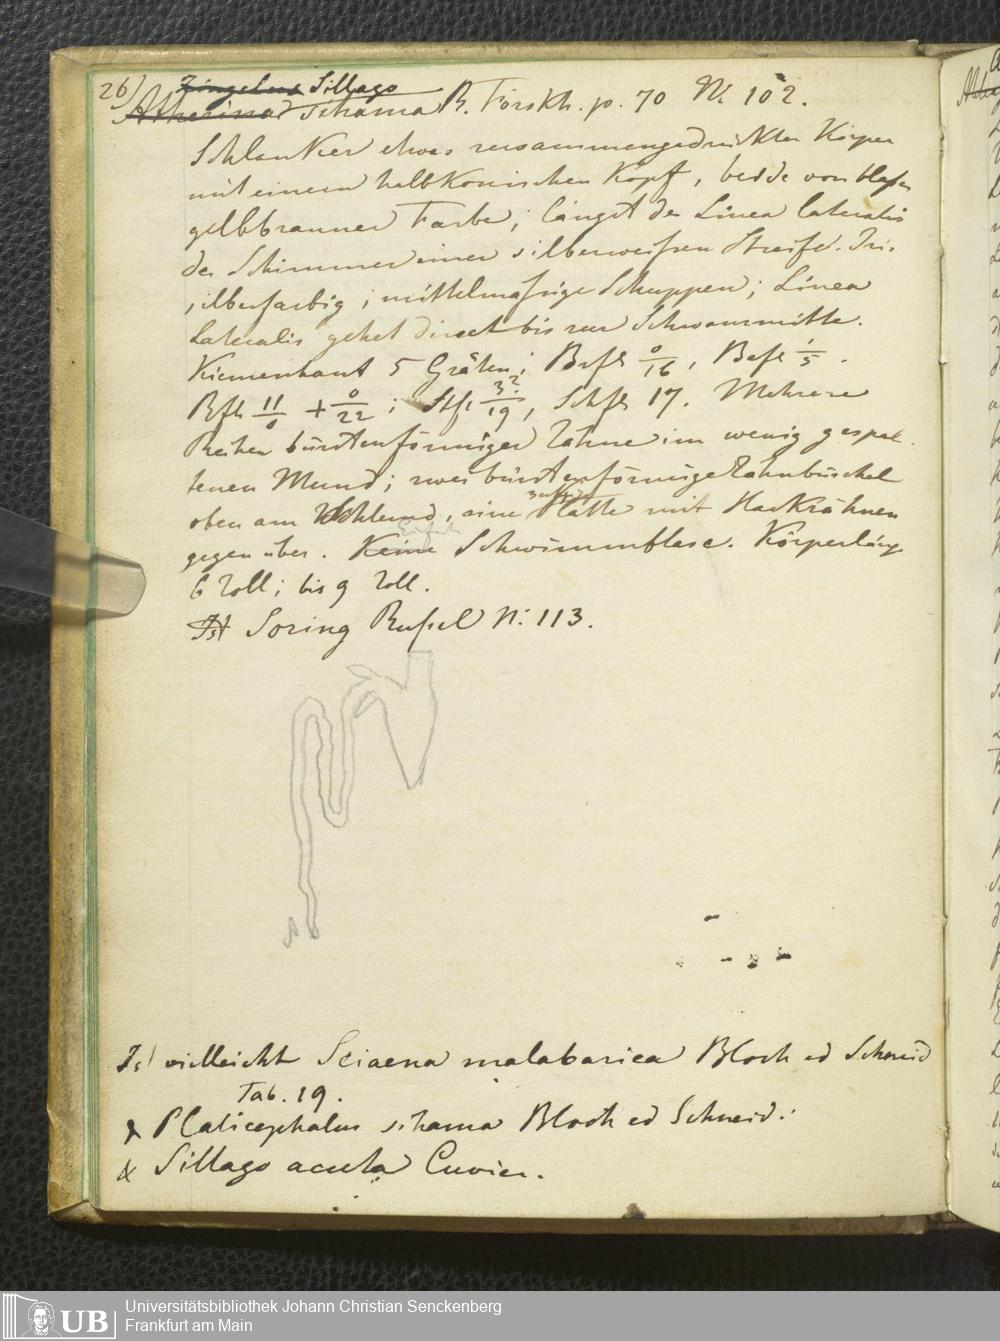 26) Zingelus Sillago
Atherina sihama R. Forskh. p. 70 N. 102.
Schlanker etwas zusammengedrükter Körper
mit einem halbkonischen Kopf, beide von blasser
gelbbrauner Farbe; längst der Linea lateralis
der Schimmer einer silberweissen Streife. Iris
silberfarbig; mittelmässige Schuppen; Linea
Lateralis gehet direct bis zur Schwanzmitte.
Kiemenhaut 5 Gräten; Brfl 0/16, Bafl 1/5.
Rfl 11/0 + 0/22; Stfl 3?/19, Schfl 17. Mehrere
Reihen bürstenförmiger Zähne im wenig gespal-
tenen Mund; zwei bürstenförmige Zahnbüschel
oben am Schlund, eine Platte mit Hackzähnen
gegen über. Keine Schwimmblase. Körperlänge
6 Zoll; bis 9 Zoll.
Ist Soring Russel N: 113.
Ist vielleicht Sciaena malabarica Bloch ed Schneid
Tab. 19.
& Platicephalus sihama Bloch ed Schneid:
& Sillago acuta Cuvier.
UB
Universitätsbibliothek Johann Christian Senckenberg
Frankfurt am Main